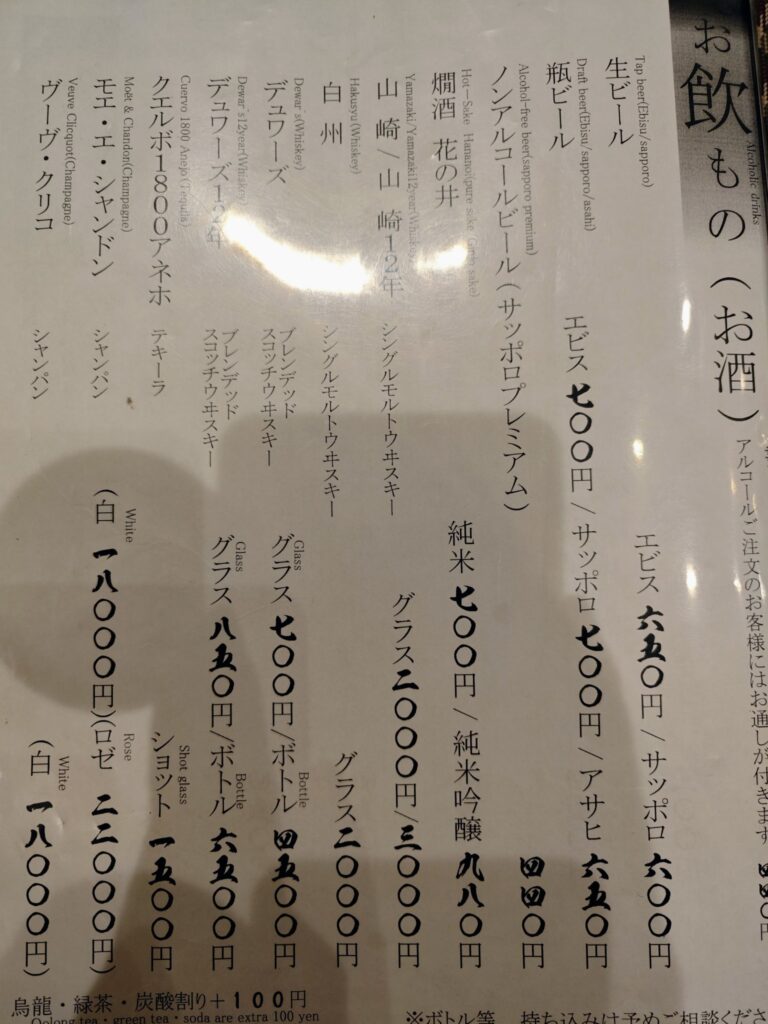 お飲もの（お酒）
Alcoholic drinks
アルコールご注文のお客様にはお通しが付きます。 四四〇円
Tap beer(Ebisu/sapporo)
生ビール エビス 六五〇円/サッポロ 六〇〇円
Draft beer(Ebisu/sapporo/asahi)
瓶ビール エビス 七〇〇円/サッポロ 七〇〇円/アサヒ 六五〇円
Alcohol-free beer(sapporo premium)
ノンアルコールビール（サッポロプレミアム） 四四〇円
Hot-Sake Hananoi(pure sake Ginjo sake)
燗酒 花の井 純米 七〇〇円/純米吟醸 九八〇円
Yamazaki/Yamazaki12year(Whiskey)
山崎/山崎12年 シングルモルトウヰスキー グラス二〇〇〇円/三〇〇〇円
Hakusyu(Whiskey)
白州 シングルモルトウヰスキー グラス二〇〇〇円
Dewar's(Whiskey)
デュワーズ ブレンデッド
スコッチウヰスキー
Glass Bottle
グラス 七〇〇円/ボトル 四五〇〇円
Dewar's12year(Whiskey)
デュワーズ12年 ブレンデッド
スコッチウヰスキー
Glass Bottle
グラス 八五〇円/ボトル 六五〇〇円
Cuervo 1800 Anejo(Tequila)
クエルボ1800アネホ テキーラ
Shot glass
ショット 一五〇〇円
Moët & Chandon(Champagne)
モエ・エ・シャンドン シャンパン
White Rose
（白 一八〇〇〇円）（ロゼ 二二〇〇〇円）
Veuve Clicquot(Champagne)
ヴーヴ・クリコ シャンパン
White
（白 一八〇〇〇円）
烏龍・緑茶・炭酸割り＋100円
Oolong tea・green tea・soda are extra 100 yen
※ボトル等 持ち込みは予めご相談くださ